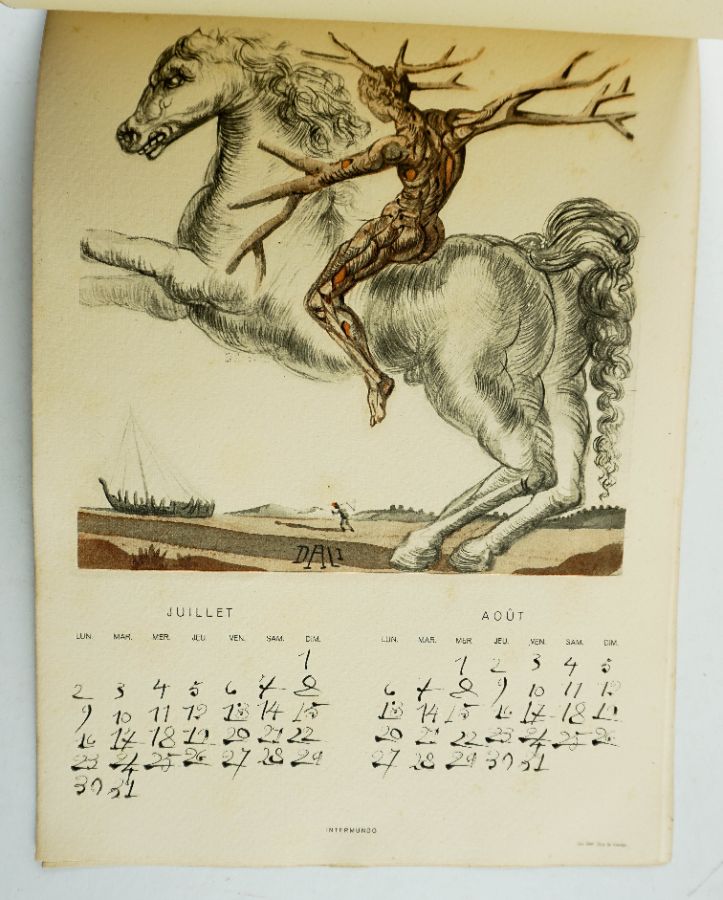 DALI
JUILLET
LUN. MAR. MER. JEU. VEN. SAM. DIM.
1
2 3 4 5 6 7 8
9 10 11 12 13 14 15
16 17 18 19 20 21 22
23 24 25 26 27 28 29
30 31
AOÛT
LUN. MAR. MER. JEU. VEN. SAM. DIM.
1 2 3 4 5
6 7 8 9 10 11 12
13 14 15 16 17 18 19
20 21 22 23 24 25 26
27 28 29 30 31
INTERMUNDO